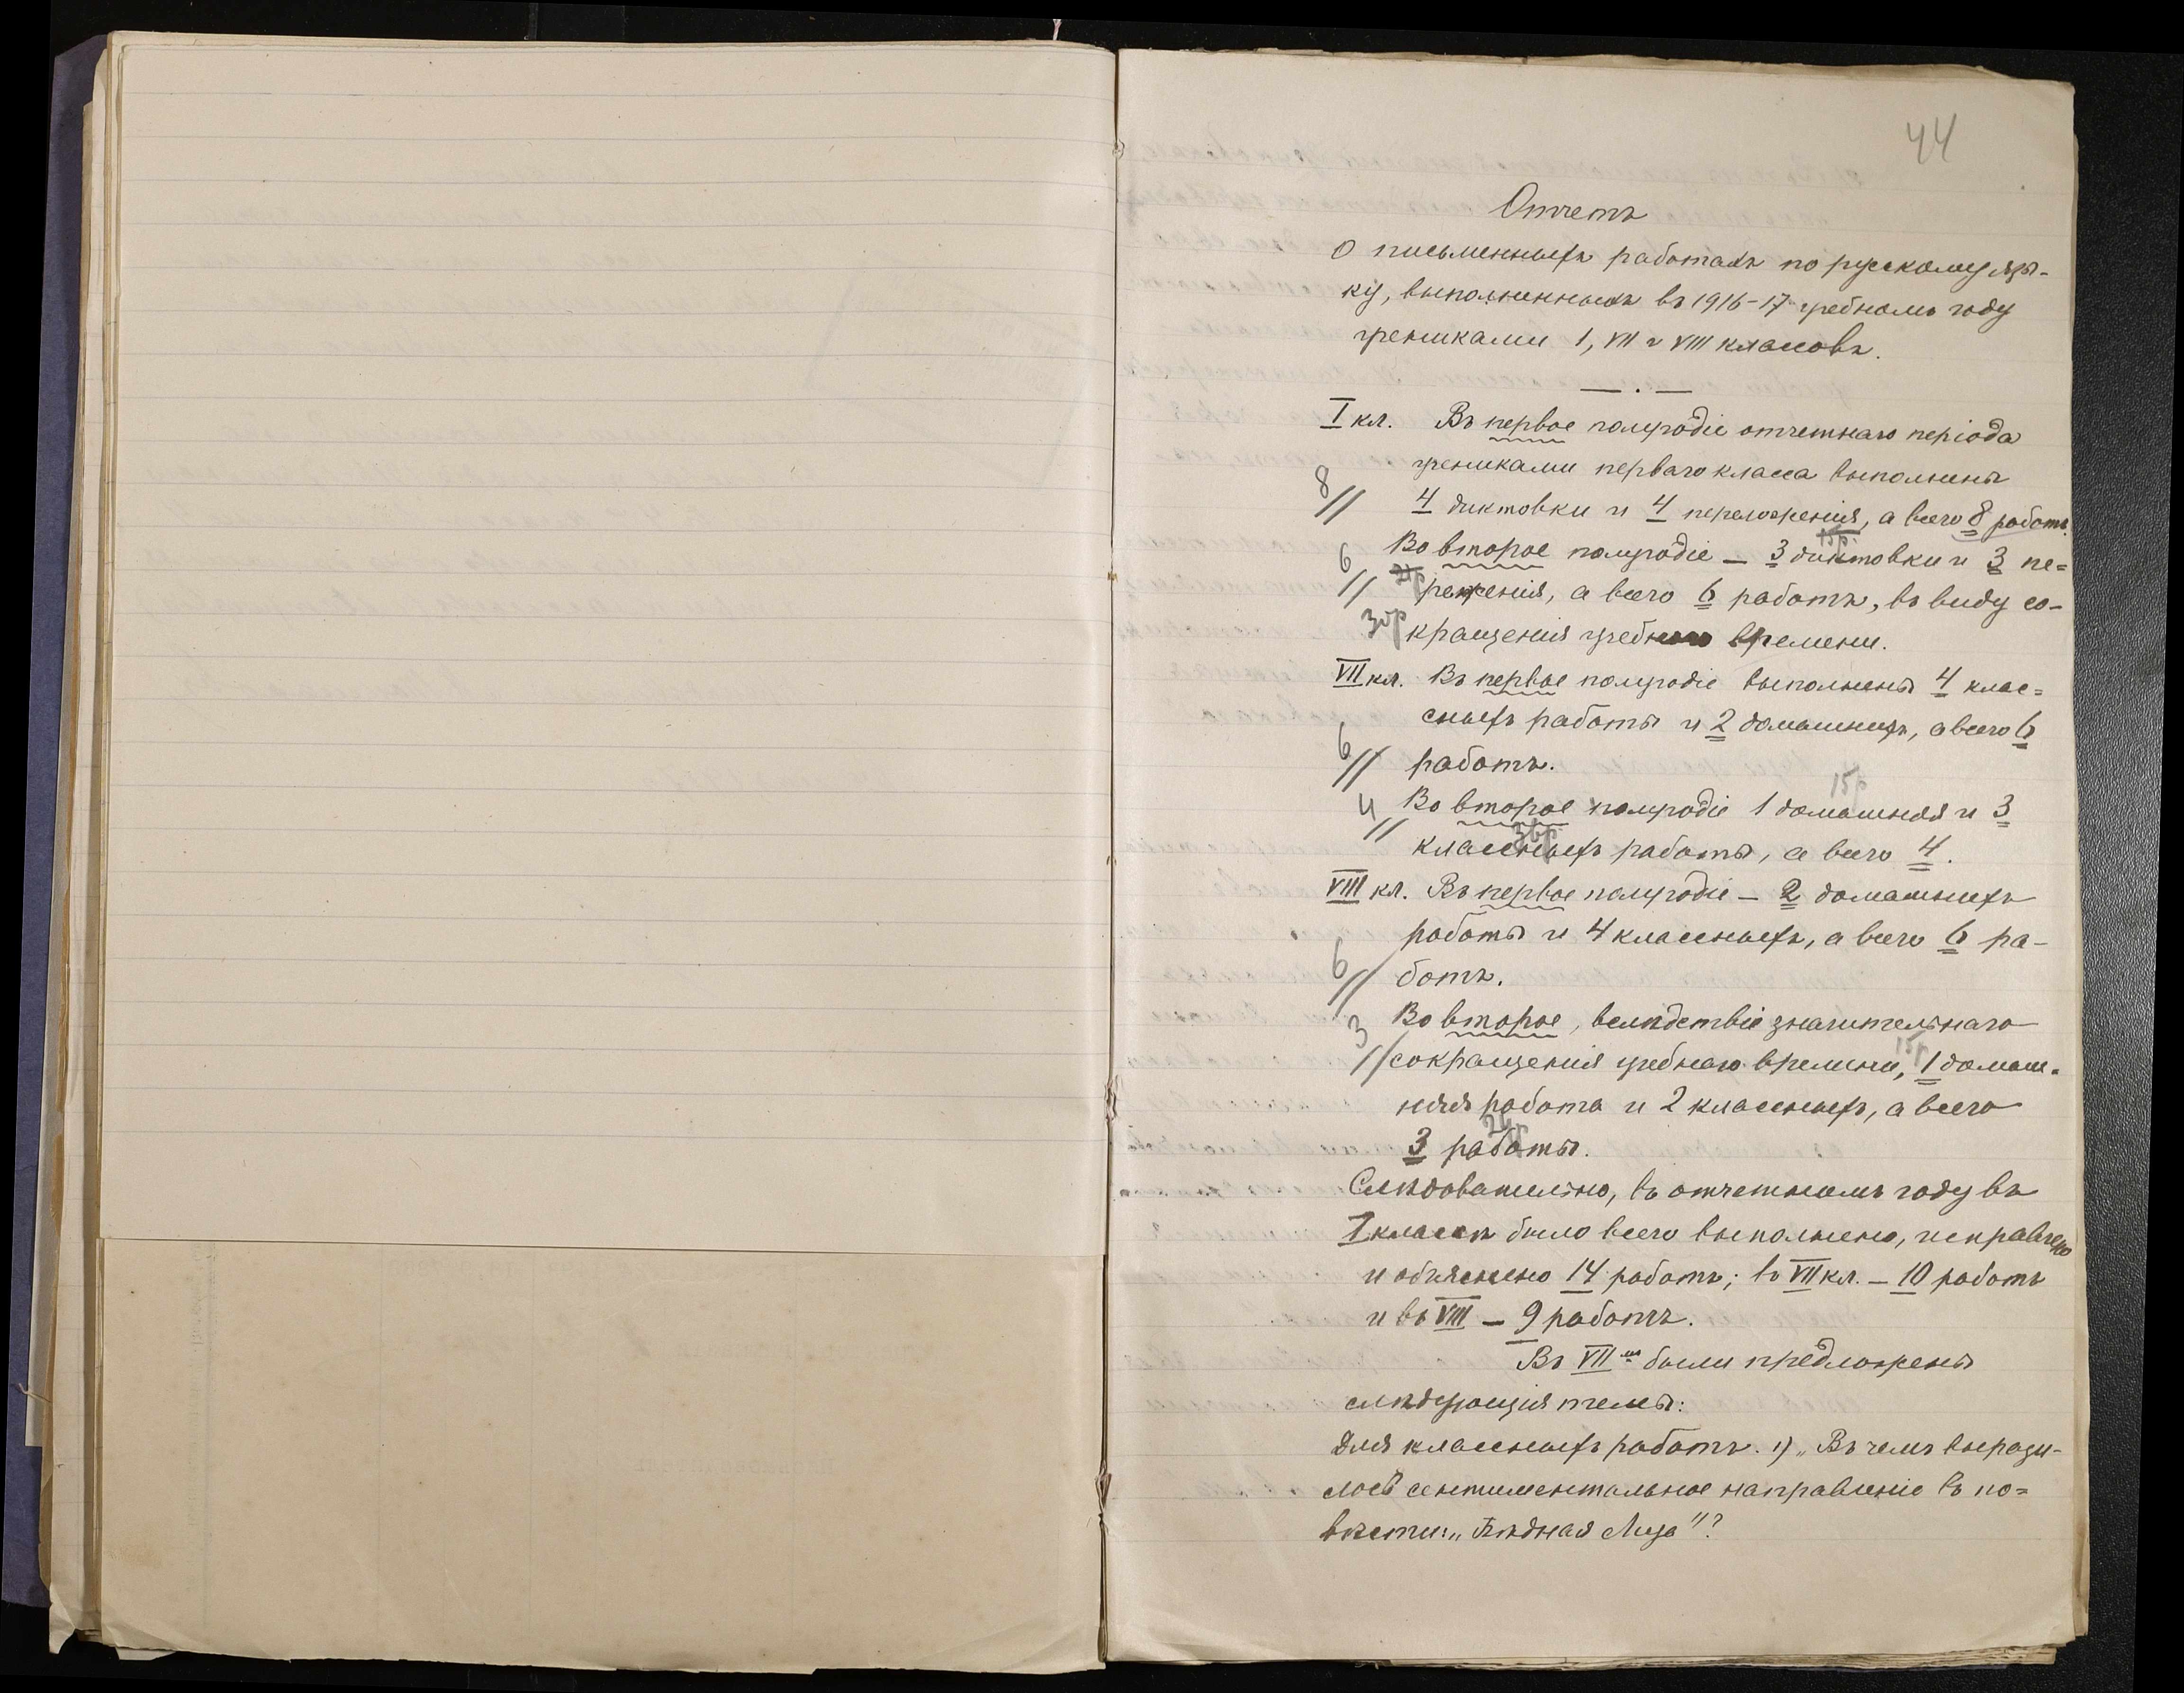 44
Отчетъ
о письменныхъ работахъ по русскому язы-
ку, выполненныхъ въ 1916-17 учебномъ году
учениками I, VII и VIII классовъ.
I кл. Въ первое полугодіе отчетнаго періода
учениками перваго класса выполнены
8 // 4 диктовки и 4 переложенія, а всего 8 работъ.
15р
6 Во второе полугодіе – 3 диктовки и 3 пе=
// реложенія, а всего 6 работъ, въ виду со-
30р кращенія учебнаго времени.
VII кл. Въ первое полугодіе выполнены 4 клас=
сныхъ работы и 2 домашнихъ, а всего 6
6 // работъ.
15р
4 // Во второе полугодіе 1 домашняя и 3
классныхъ работы, а всего 4.
VIII кл. Въ первое полугодіе – 2 домашнихъ
работы и 4 классныхъ, а всего 6 ра-
6 // ботъ.
3 Во второе, вслѣдствіе значительнаго
15р
// сокращенія учебнаго времени, 1 домаш-
няя работа и 2 классныхъ, а всего
3 работы.
Слѣдовательно, въ отчетномъ году въ
I классѣ было всего выполнено, исправлено
и объяснено 14 работъ; въ VII кл. – 10 работъ
и въ VIII – 9 работъ.
Въ VII мъ были предложены
слѣдующія темы:
Для классныхъ работъ. 1) „Въ чемъ вырази-
лось сентиментальное направленіе въ по=
вѣсти: „Бѣдная Лиза"?